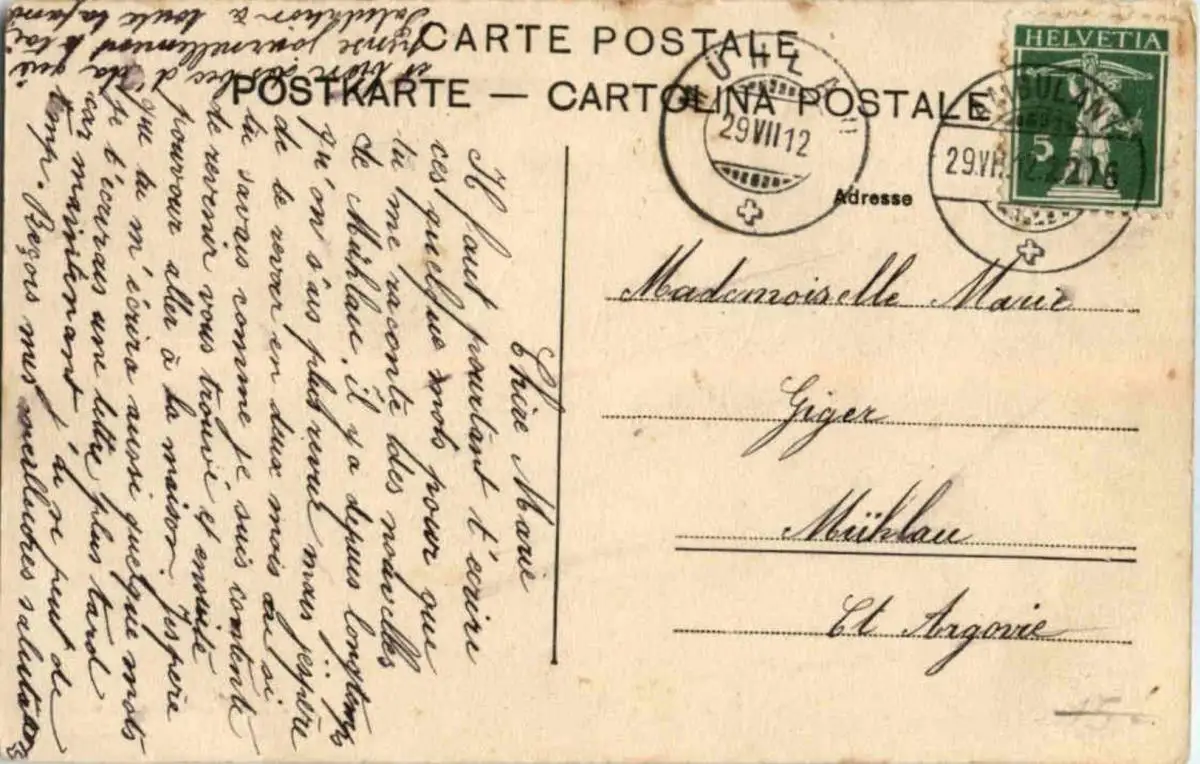 CARTE POSTALE
POSTKARTE — CARTOLINA POSTALE
HELVETIA
5
MÜHLAU
29 VII 12
AMBULANT
29.VII.12
Adresse
Mademoiselle Marie
Giger
Mühlau
Ct Argovie
15.-
Chère Marie
Il faut pourtant t'écrire
ces quelque mots pour que
tu me raconte des nouvelles
de Mühlau. il y a depus longtemps
qu'on s'as plus revue mais j'espère
de te revoir en deux mois si
tu savais comme je suis contente
de revenir vous trouvé et ensuite
pouvoir aller à la maison. J'espère
que tu m'écrira aussi quelque mots
je t'écrirais une lettre plus tard
car maintenant je ne peut de
temp. Reçois mes meilleures salutation
et
pense journellement à toi
Salutation à toute ta fam